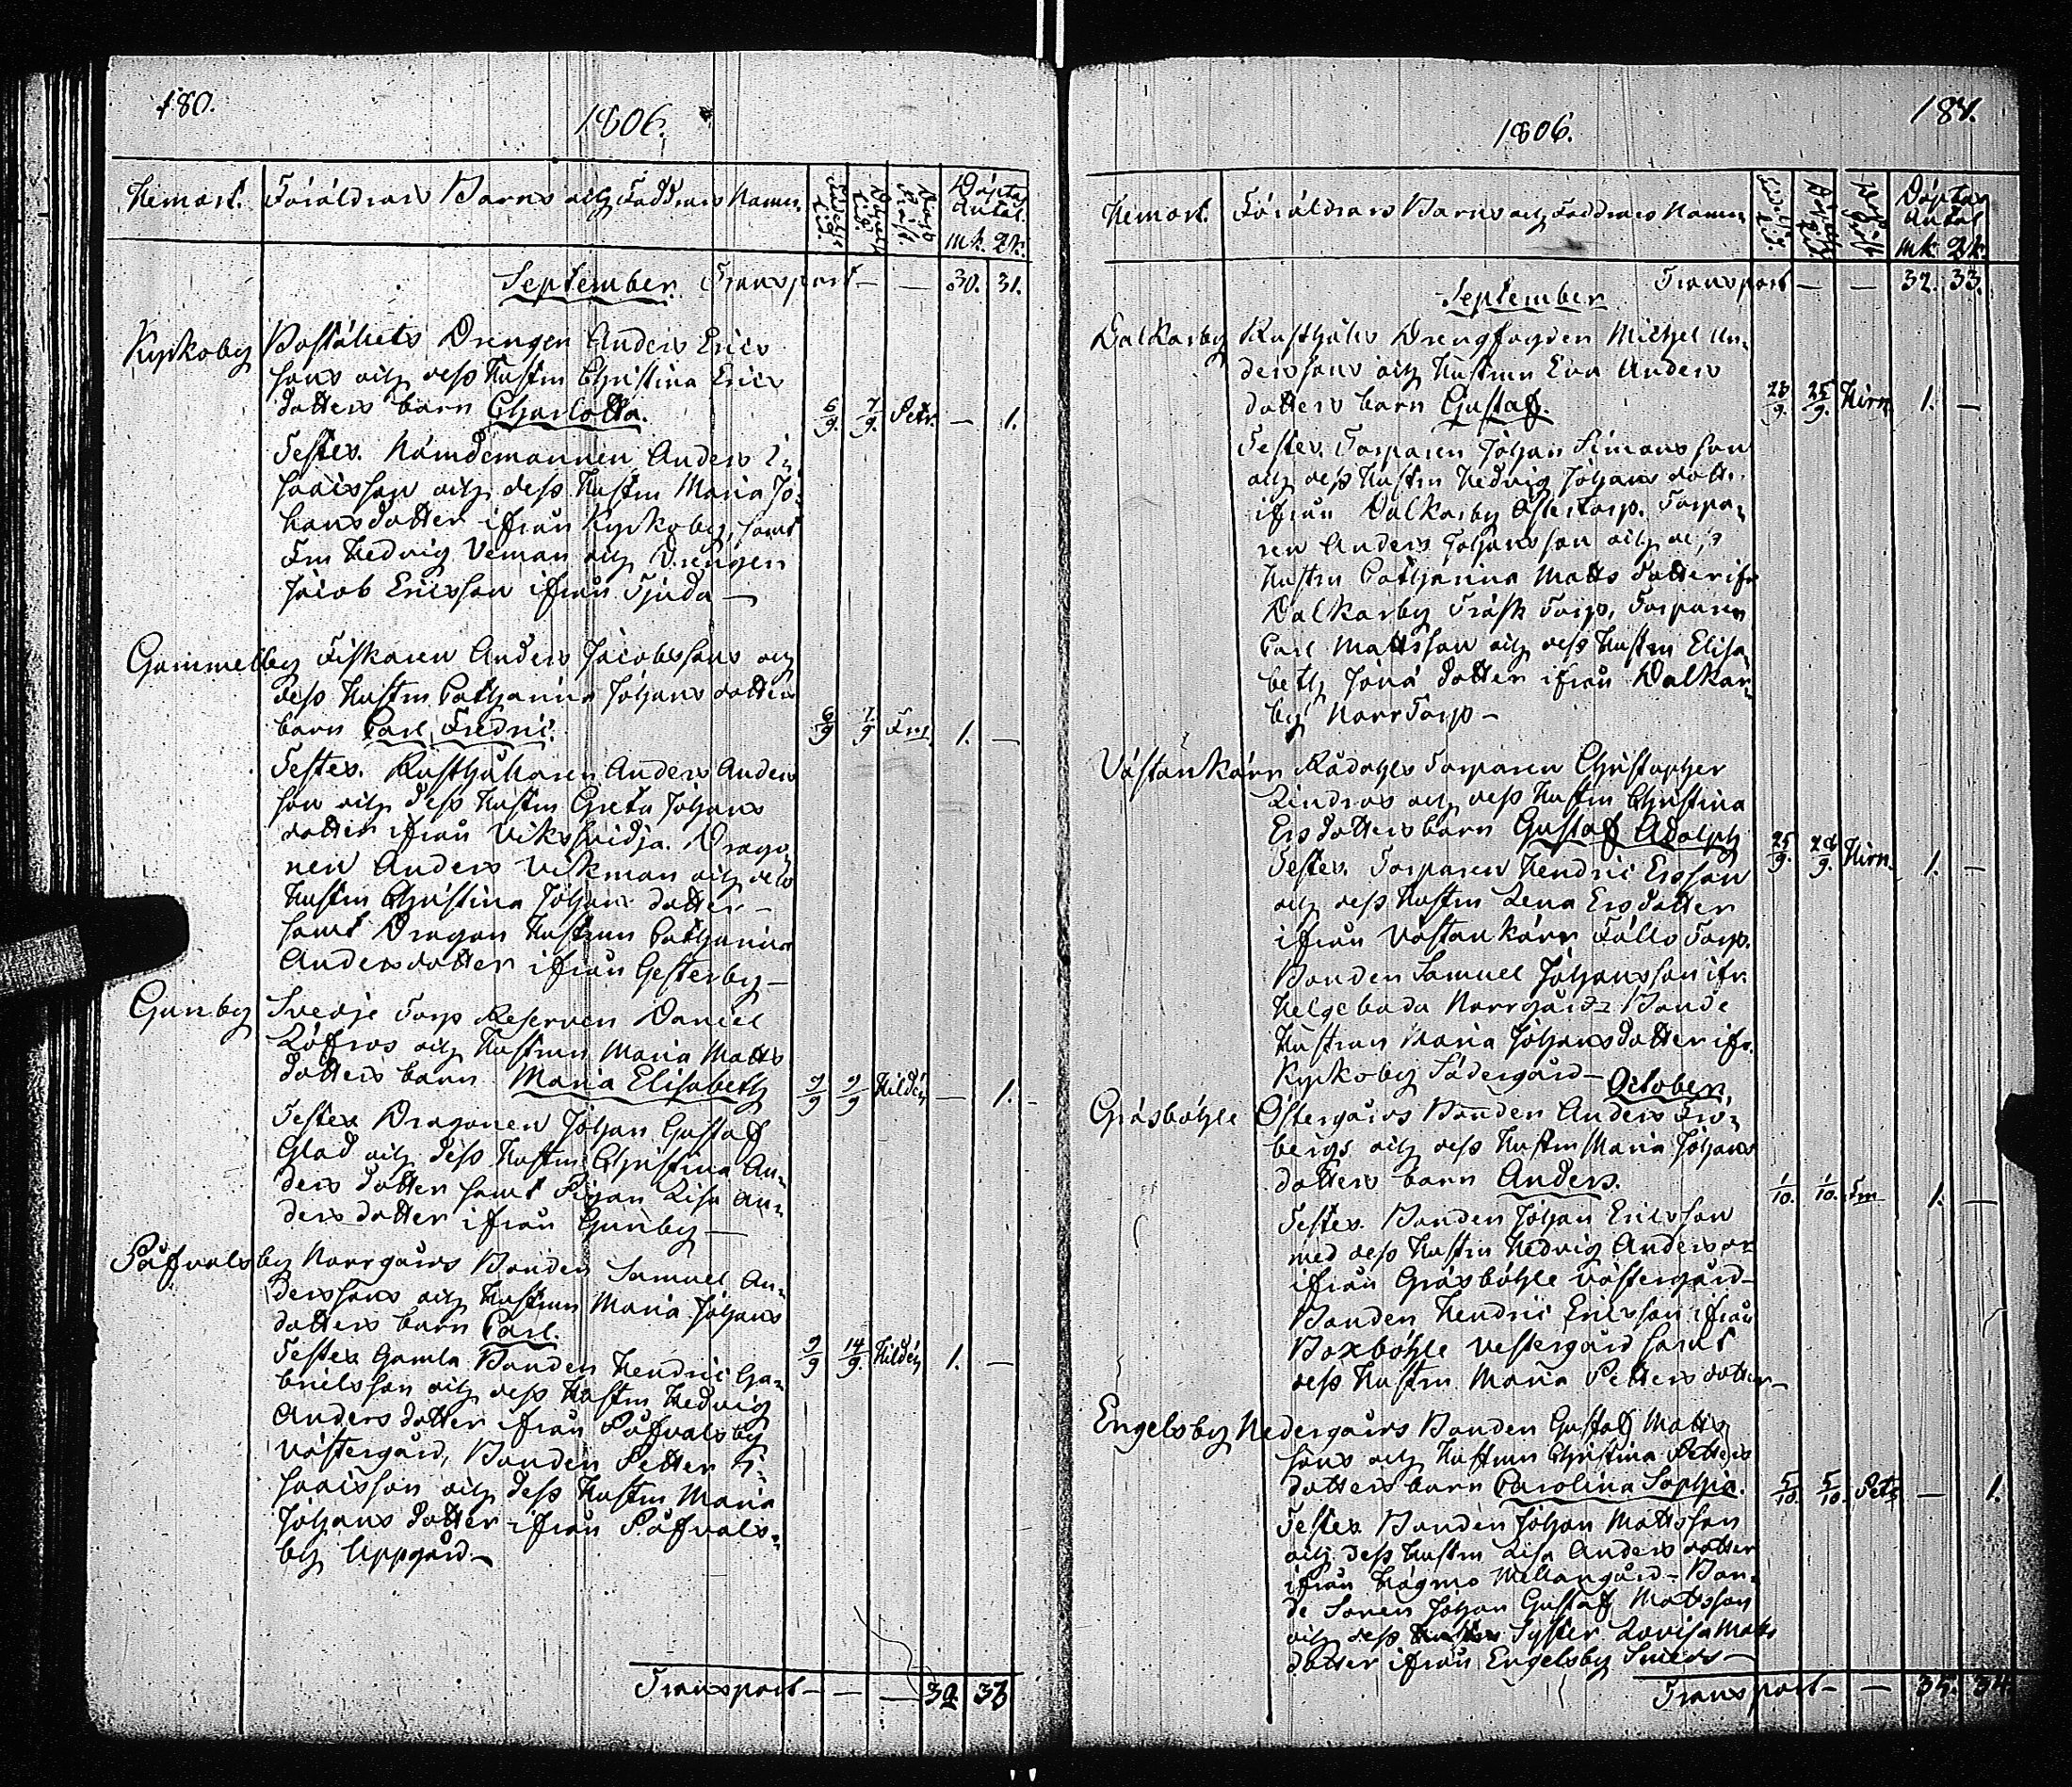 180.
1806.
Hemort. Föräldrars Barns och Faddrars Namn. Födelse Tid. Döpelse Tid. Döpt Präst. Döptas Antal.
mk. qk.
September. Transport — — 30. 31.
Kyrkoby Anders Erics
sons och dess Hustru Christina Erics
dotters barn Charlotta. 6/9. 7/9. Petr. — 1.
Testes. Nämdemannen Anders I-
saacsson och dess Hustru Maria Jo-
hansdotter ifrån Kyrkoby, samt
Hedvig Veman och Drengen
Jacob Ericsson ifrån Tjuda —
Gammelby Fiskaren Anders Jacobssons och
dess Hustru Catharina Johans dotters
barn Carl Fredric. 6/9 7/9 1. —
Testes. Rusthållaren Anders Anders
son och dess Hustru Greta Johans
dotter ifrån Viksvidja. Drago-
nen Anders Vikman och dess
Hustru Christina Johans dotter —
samt Dragon Hustrun Catharina
Andersdotter ifrån Gesterby —
Gunby Svedje Torp Reserven Daniel
Löfros och Hustrun Maria Matts
dotters barn Maria Elisabeth 9/9 9/9 Hildén — 1.
Testes Dragonen Johan Gustaf
Glad och dess Hustru Christina An-
ders dotter samt Pigan Lisa An-
ders dotter ifrån Gunby —
Påfvalsby Norrgårds Bonden Samuel An-
derssons och Hustrun Maria Johans
dotters barn Carl. 9/9 14/9. Hildén 1. —
Testes Gamla Bonden Hendric Ga-
brielsson och dess Hustru Hedvig
Anders dotter ifrån Påfvalsby
Västergård, Bonden Petter I-
saacsson och dess Hustru Maria
Johans dotter ifrån Påfvals-
by Uppgård —
Transport — — — 32. 33
181.
1806.
Hemort. Föräldrars Barns och Faddrars Namn Döptas Antal
mk qk.
September Transport — — 32. 33.
Dalkarby Rusthålls Drengfogden Michel An-
derssons och Hustrun Eva Anders
dotters barn Gustaf. 23/9. 25/9. Hirn. 1. —
Testes. Torparen Johan Simonsson
och dess Hustru Hedvig Johans dott.
ifrån Dalkarby Östertorp. Torpa-
ren Anders Johansson och dess
Hustru Catharina Matts dotter ifr.
Dalkarby Träsk Torp. Torparen
Carl Mattsson och dess Hustru Elisa-
beth Jona dotter ifrån Dalkar-
by Norrtorp —
Västankärr Rådahls Torparen Christopher
Lindros och dess Hustru Christina
Ersdotters barn Gustaf Adolph 25/9. 28/9. Hirn. 1. —
Testes. Torparen Hendric Ersson
och dess Hustru Lena Ersdotter
ifrån Västankärr Fålls Torp.
Bonden Samuel Johansson ifr.
Helgeboda Norrgård — Bonde
Hustrun Maria Johansdotter ifr.
Kyrkoby Södergård —
October.
Gräsböhle Östergårds Bonden Anders Fro-
bergs och dess Hustru Maria Johans
dotters barn Anders. 1/10. 1/10. 1. —
Testes. Bonden Johan Ericsson
med dess Hustru Hedvig Anders
ifrån Gräsböhle Västergård —
Bonden Hendric Ericsson ifrån
Boxböhle Vestergård samt
dess Hustru Maria Petters dotter —
Engelsby Nedergårds Bonden Gustaf Matts
sons och Hustrun Christina Petters
dotters barn Carolina Sophia. 5/10. 5/10. Petr — 1.
Testes Bonden Johan Mattsson
och dess Hustru Lisa Anders dotter
ifrån Högmo Mellangård — Bon-
de Sonen Johan Gustaf Mattsson
och dess Syster Lovisa Matts
dotter ifrån Engelsby Smeds —
Transport — — 35. 34.